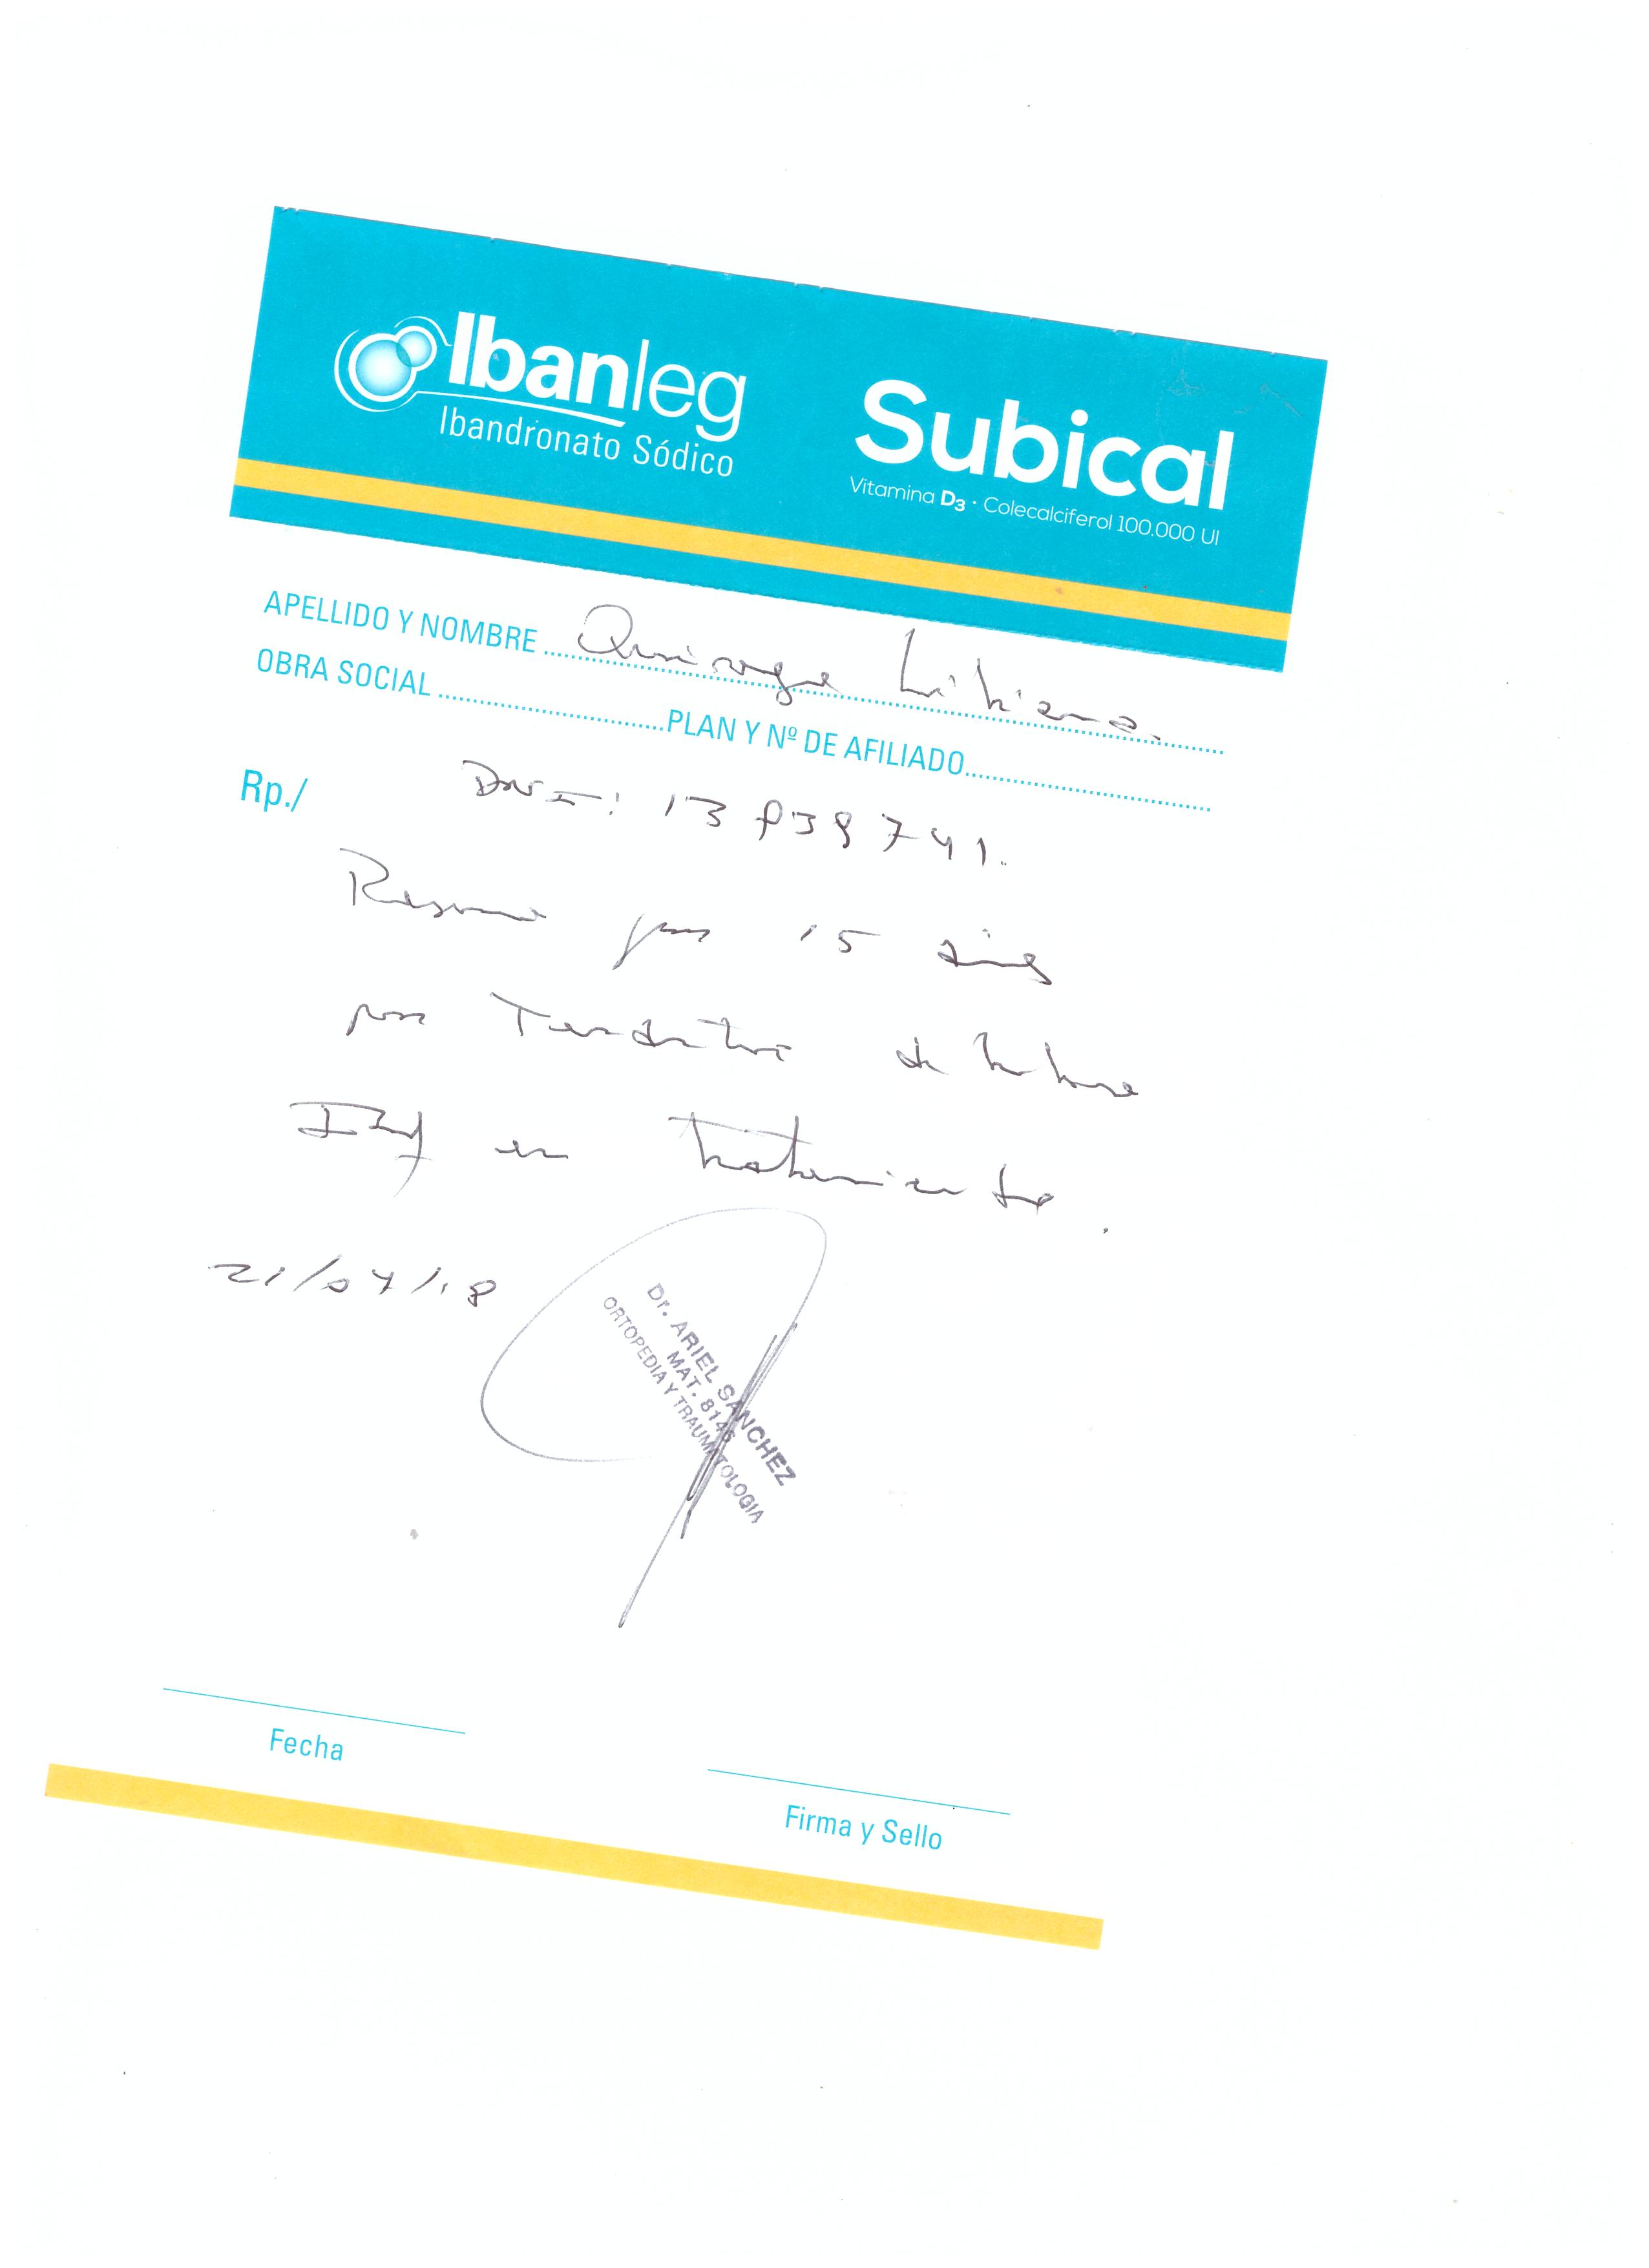 Ibanleg
Ibandronato Sódico
Subical
Vitamina D3 · Colecalciferol 100.000 UI
APELLIDO Y NOMBRE Quiroga Liliana.
OBRA SOCIAL PLAN Y Nº DE AFILIADO
Rp./
DNI: 13 839741.
Reposo por 15 días
por Tendinitis de
en tratamiento.
21/07/18
Dr. ARIEL SANCHEZ
MAT. 8146
ORTOPEDIA Y TRAUMATOLOGIA
Fecha
Firma y Sello